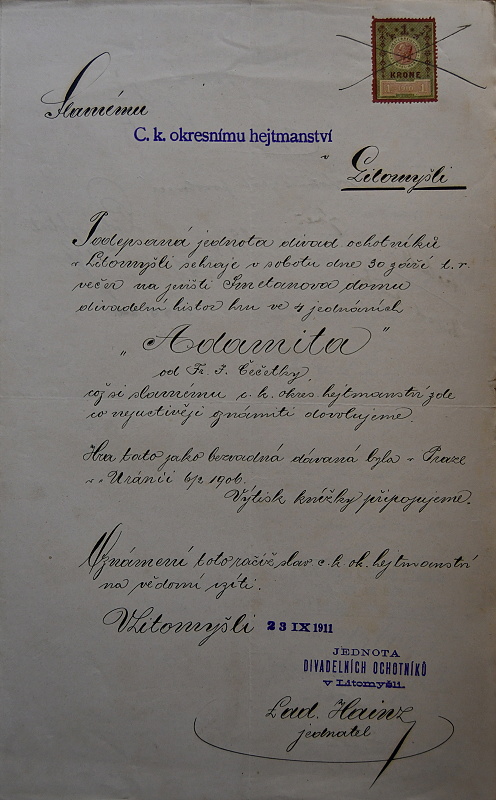 1
KRONE
Slavnému
C. k. okresnímu hejtmanství
v
Litomyšli
Podepsaná jednota divad ochotníků
v Litomyšli sehraje v sobotu dne 30 září t. r.
večer na jevišti Smetanova domu
divadelní histor hru ve 4 jednáních
"Adamita"
od Fr. J. Čečetky,
což si slavnému c. k. okres. hejtmanství zde
co nejuctivěji známiti dovolujeme.
Hra tato jako bezvadná dávaná byla v Praze
v "Uránii" 1906.
Výtisk knížky připojujeme.
Oznámení toto račiž slav c. k. ok. hejtmanství
na vědomí vzíti.
V Litomyšli 23 IX 1911
JEDNOTA
DIVADELNÍCH OCHOTNÍKŮ
v Litomyšli.
Lad. Hainz
jednatel